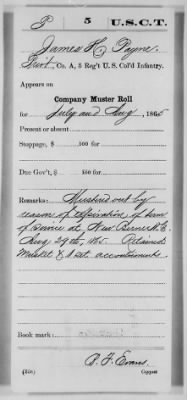 P 5 U.S.C.T.
James H. Payne
Priv't, Co. A, 5 Reg't U. S. Col'd Infantry.
Appears on
Company Muster Roll
for July and Aug, 1865
Present or absent
Stoppage, $ 100 for
Due Gov't, $ 100 for
Remarks: Mustered out by
reason of expiration of term
of Service at New Berne N.C.
Aug 29th, 65. Retained
Musket & Set accoutrements.
Book mark:
P. F. Evans
(358) Copyist.